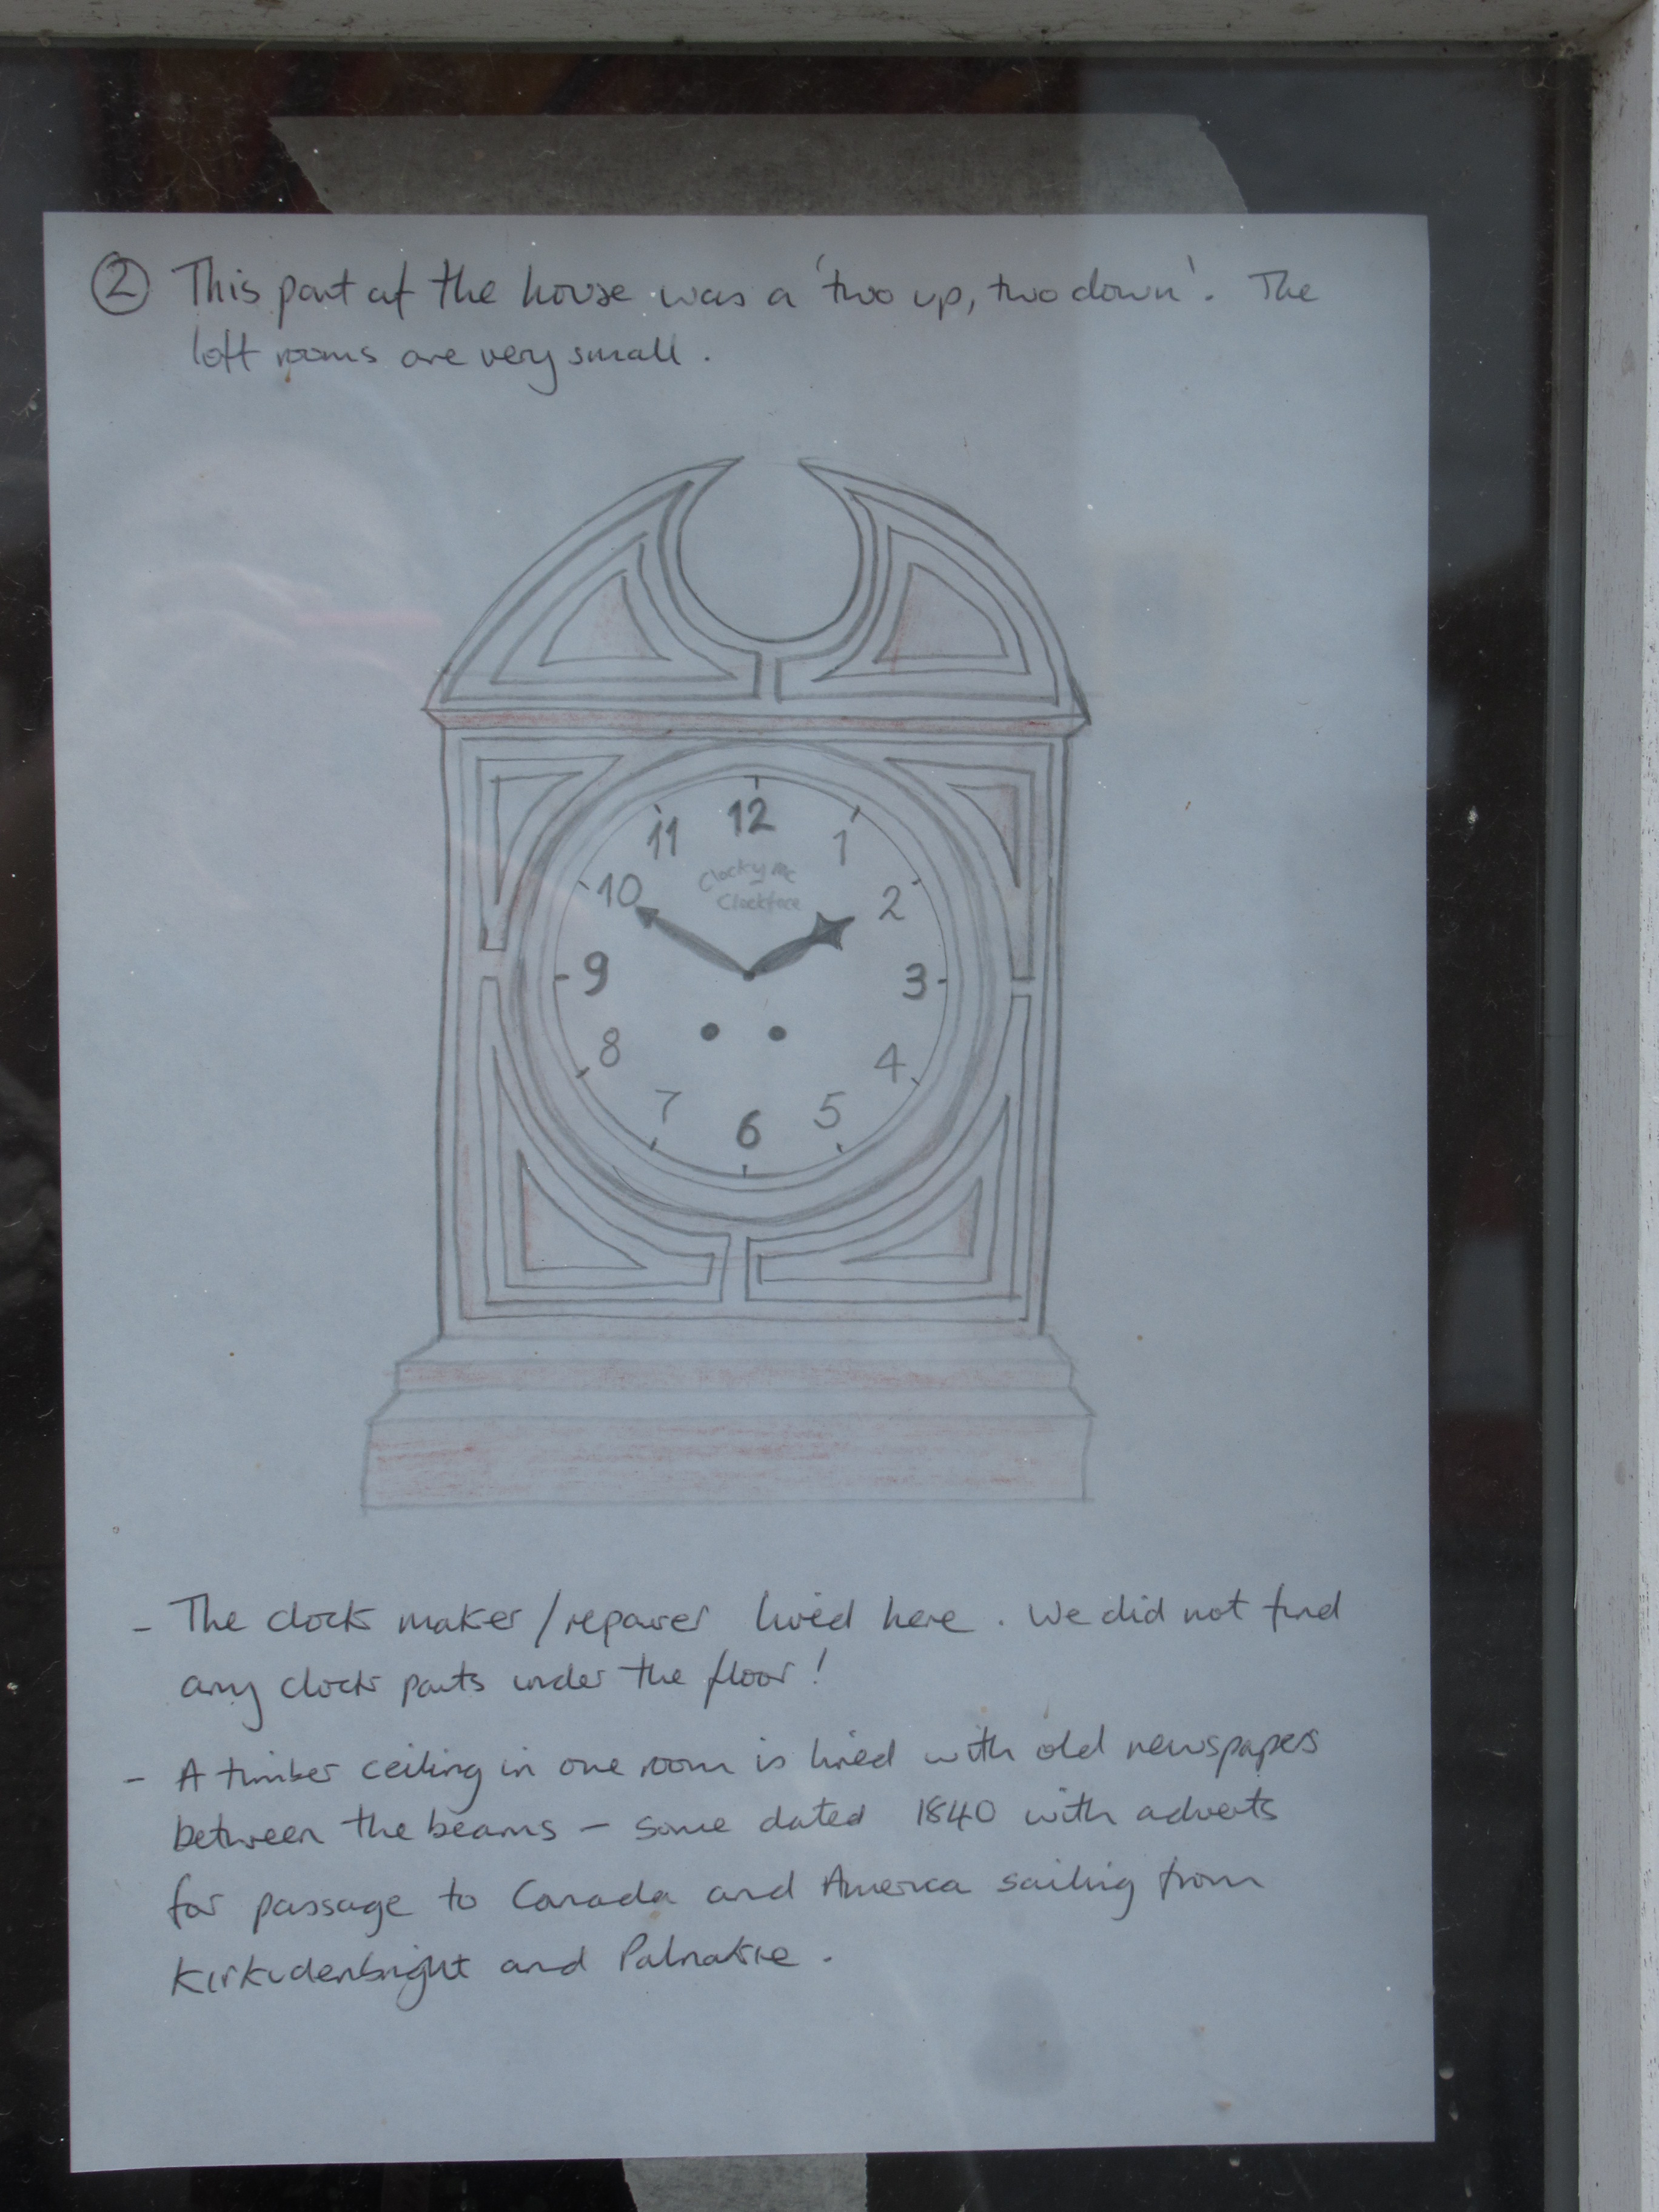 ② This part of the house was a 'two up, two down'. The
loft rooms are very small.
11 12 1
10 2
9 3
8 4
7 6 5
Clocky Mc
Clockface
- The clock maker/repairer lived here. We did not find
any clock parts under the floor!
- A timber ceiling in one room is lined with old newspapers
between the beams - some dated 1840 with adverts
for passage to Canada and America sailing from
Kirkudenbright and Palnakie.